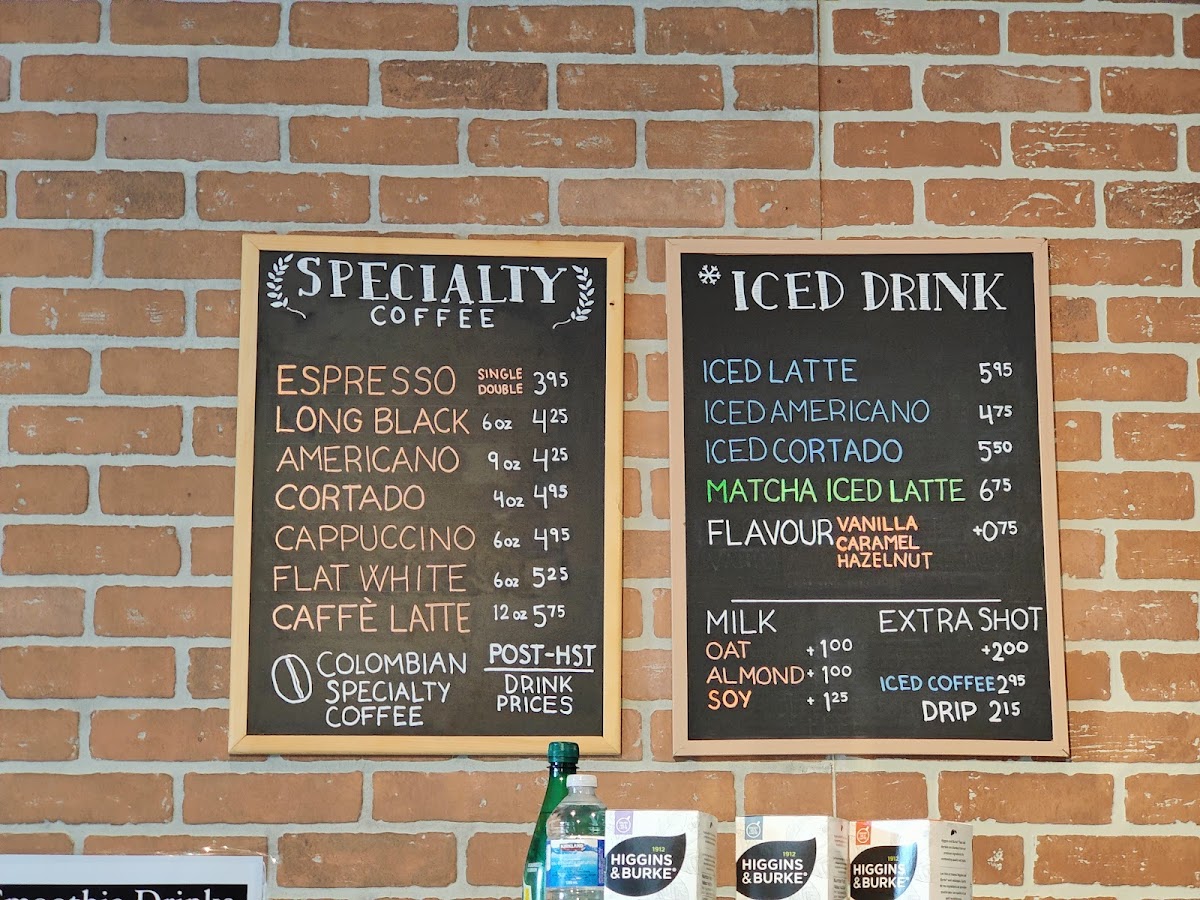 SPECIALTY
COFFEE
ESPRESSO SINGLE DOUBLE 3.95
LONG BLACK 6oz 4.25
AMERICANO 9oz 4.25
CORTADO 4oz 4.95
CAPPUCCINO 6oz 4.95
FLAT WHITE 6oz 5.25
CAFFÈ LATTE 12oz 5.75
COLOMBIAN
SPECIALTY
COFFEE
POST-HST
DRINK
PRICES
ICED DRINK
ICED LATTE 5.95
ICED AMERICANO 4.75
ICED CORTADO 5.50
MATCHA ICED LATTE 6.75
FLAVOUR VANILLA +0.75
CARAMEL
HAZELNUT
MILK
OAT +1.00
ALMOND +1.00
SOY +1.25
EXTRA SHOT
+2.00
ICED COFFEE 2.95
DRIP 2.15
Smoothie Drinks
KIRKLAND
1912
HIGGINS
&BURKE
1912
HIGGINS
&BURKE
1912
HIGGINS
&BURKE